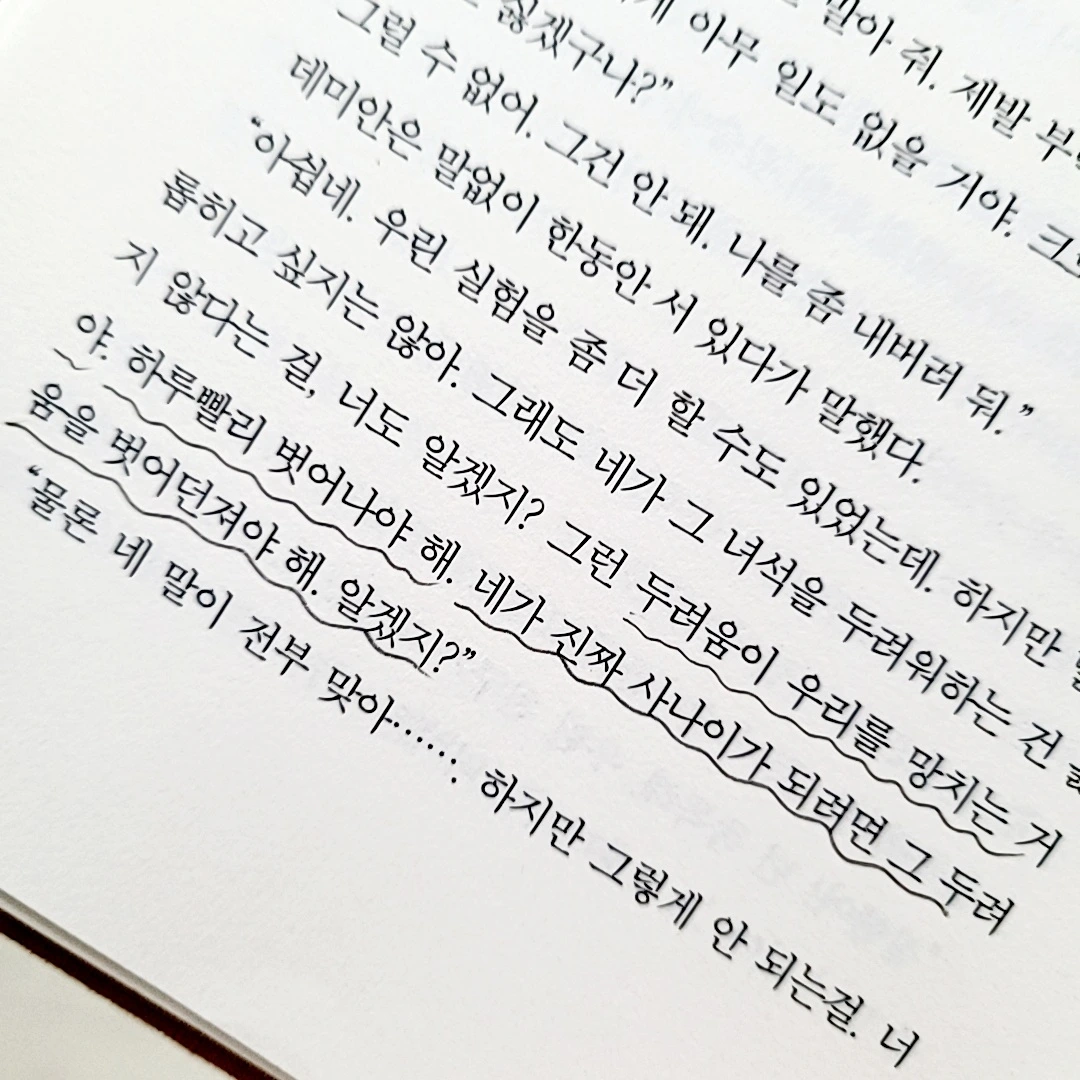 말아 줘. 제발
아무 일도 없을 거야.
싫겠구나?”
그럴 수 없어. 그건 안 돼. 나를 좀 내버려 둬.”
데미안은 말없이 한동안 서 있다가 말했다.
“아쉽네. 우린 실험을 좀 더 할 수도 있었는데. 하지만
롭히고 싶지는 않아. 그래도 네가 그 녀석을 두려워하는 건
지 않다는 걸, 너도 알겠지? 그런 두려움이 우리를 망치는 거
야. 하루빨리 벗어나야 해. 네가 진짜 사나이가 되려면 그 두려
움을 벗어던져야 해. 알겠지?”
“물론 네 말이 전부 맞아……. 하지만 그렇게 안 되는걸. 너